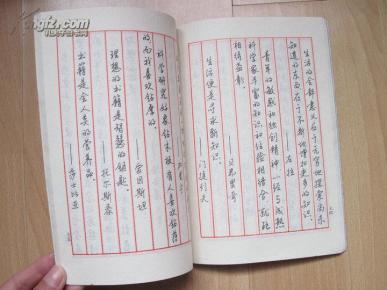 生活的全部意义在于无穷地探索尚未
知道的东西在于不断地增加更多的知识。
——左拉
青年的敏感和独创精神一经与成熟
科学家丰富的知识和经验相结合就能
相得益彰。
——贝弗里奇
生活便是寻求新知识。
——门捷列夫
科学研究好象钻木板有人喜欢钻薄
的而我喜欢钻厚的。
——爱因斯坦
理想的书籍是智慧的钥匙。
——托尔斯泰
书籍是全人类的营养品。
——莎士比亚